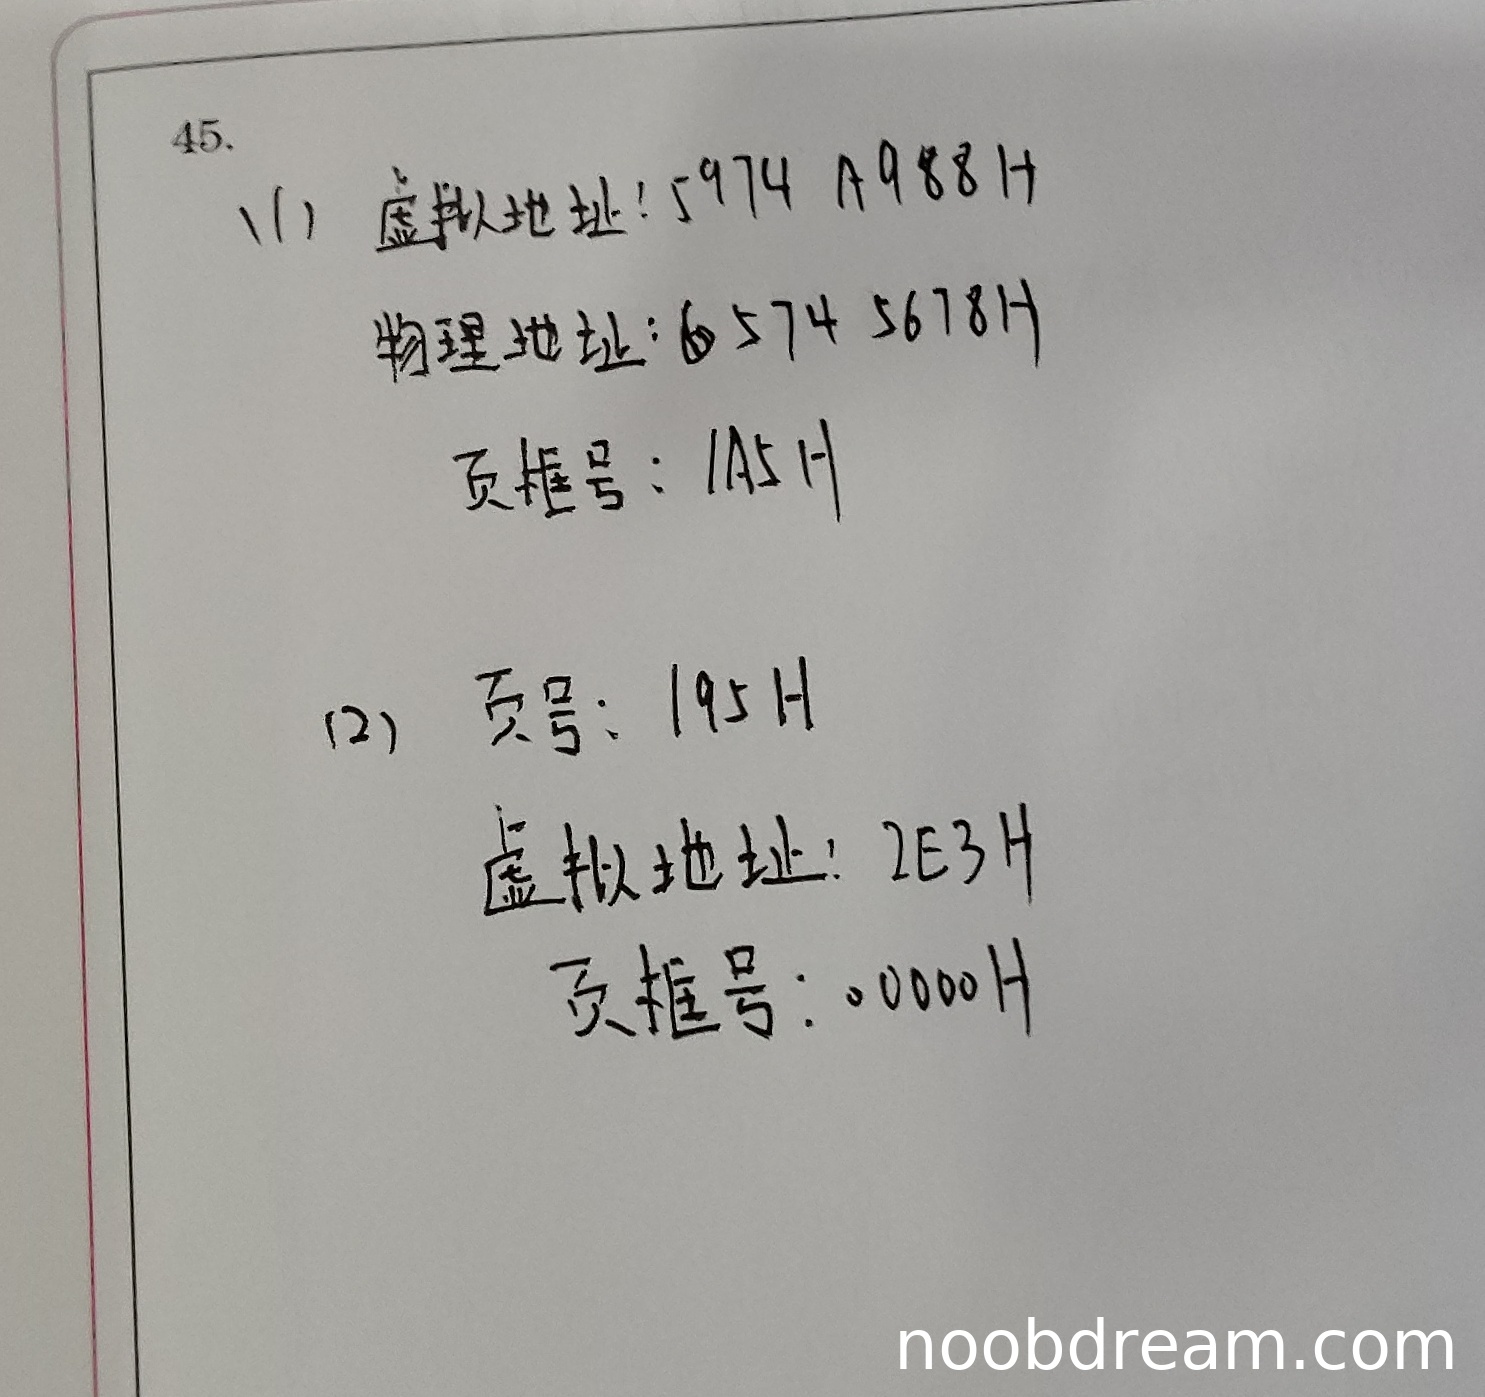 45.
(1) 虚拟地址: 5974 A988H
物理地址: 6574 5678H
页框号: 1A5H
(2) 页号: 195H
虚拟地址: 2E3H
页框号: 00000H
noobdream.com